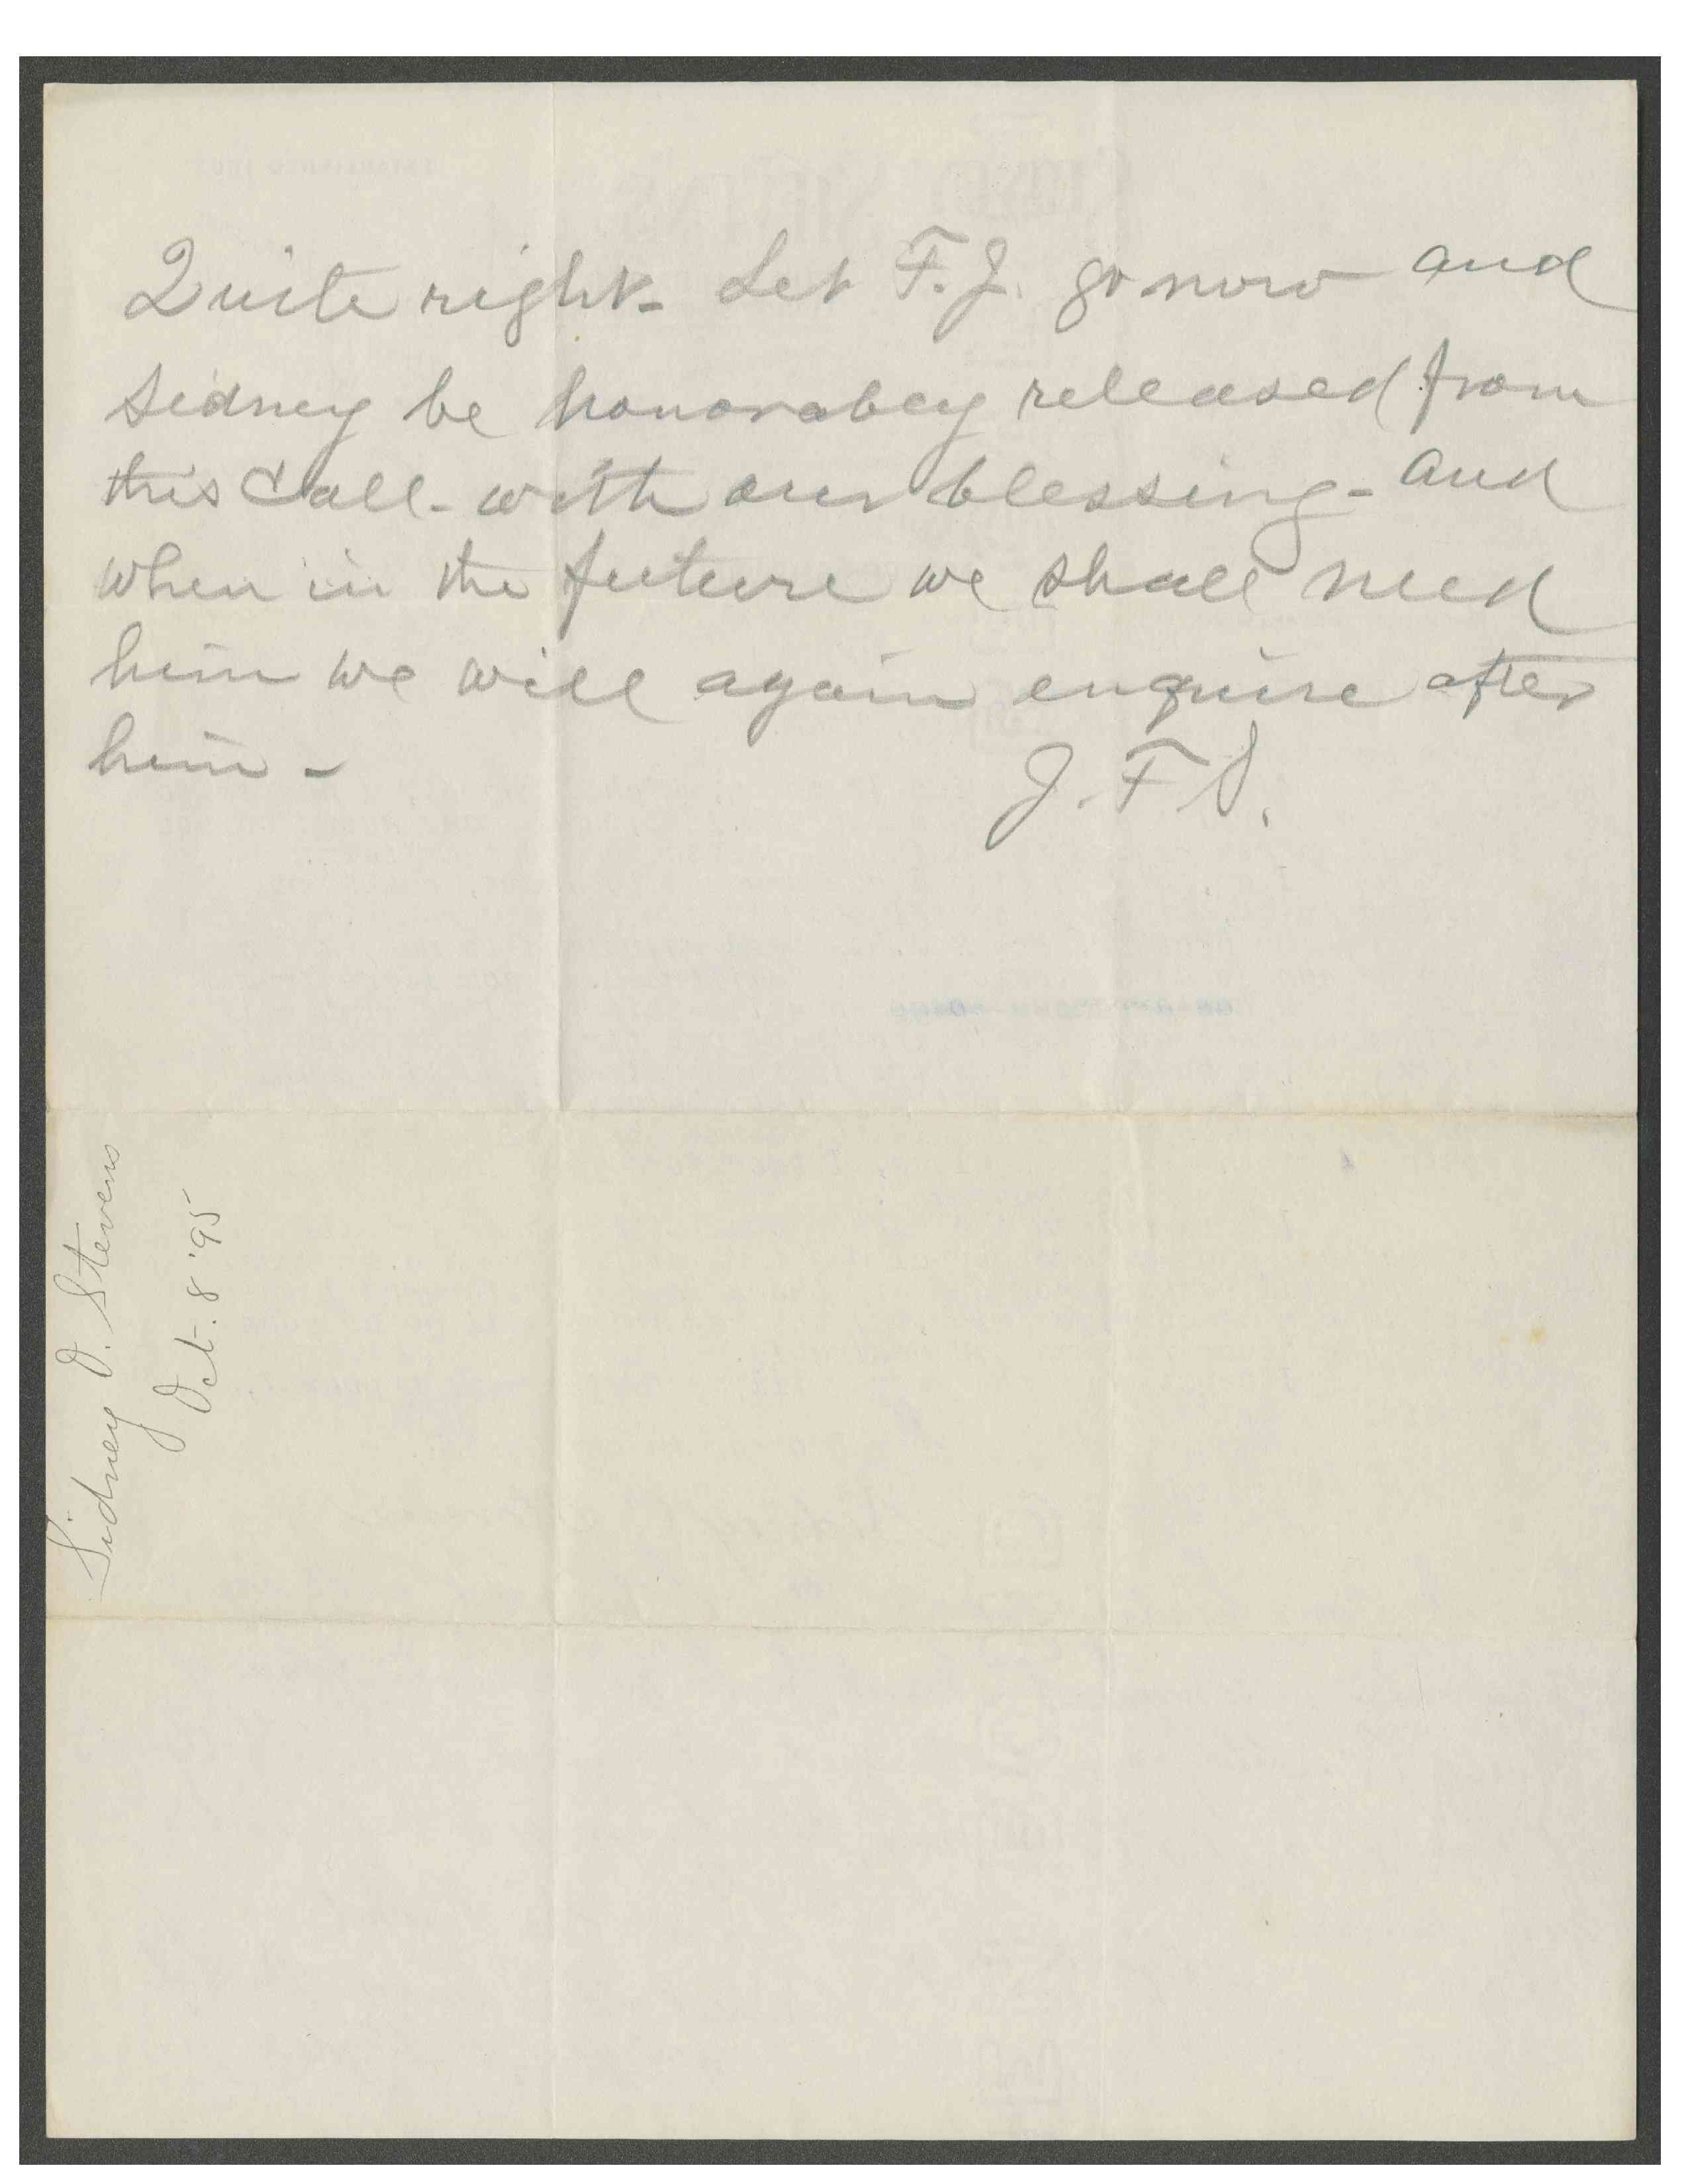 Quite right. Let F. J. go now and
Sidney be honorabey released from
this Call. with our blessing - and
when in the future we shall need
him we will again enquire after
him -
J. F S.
Sidney O. Stevens
Oct. 8 '95